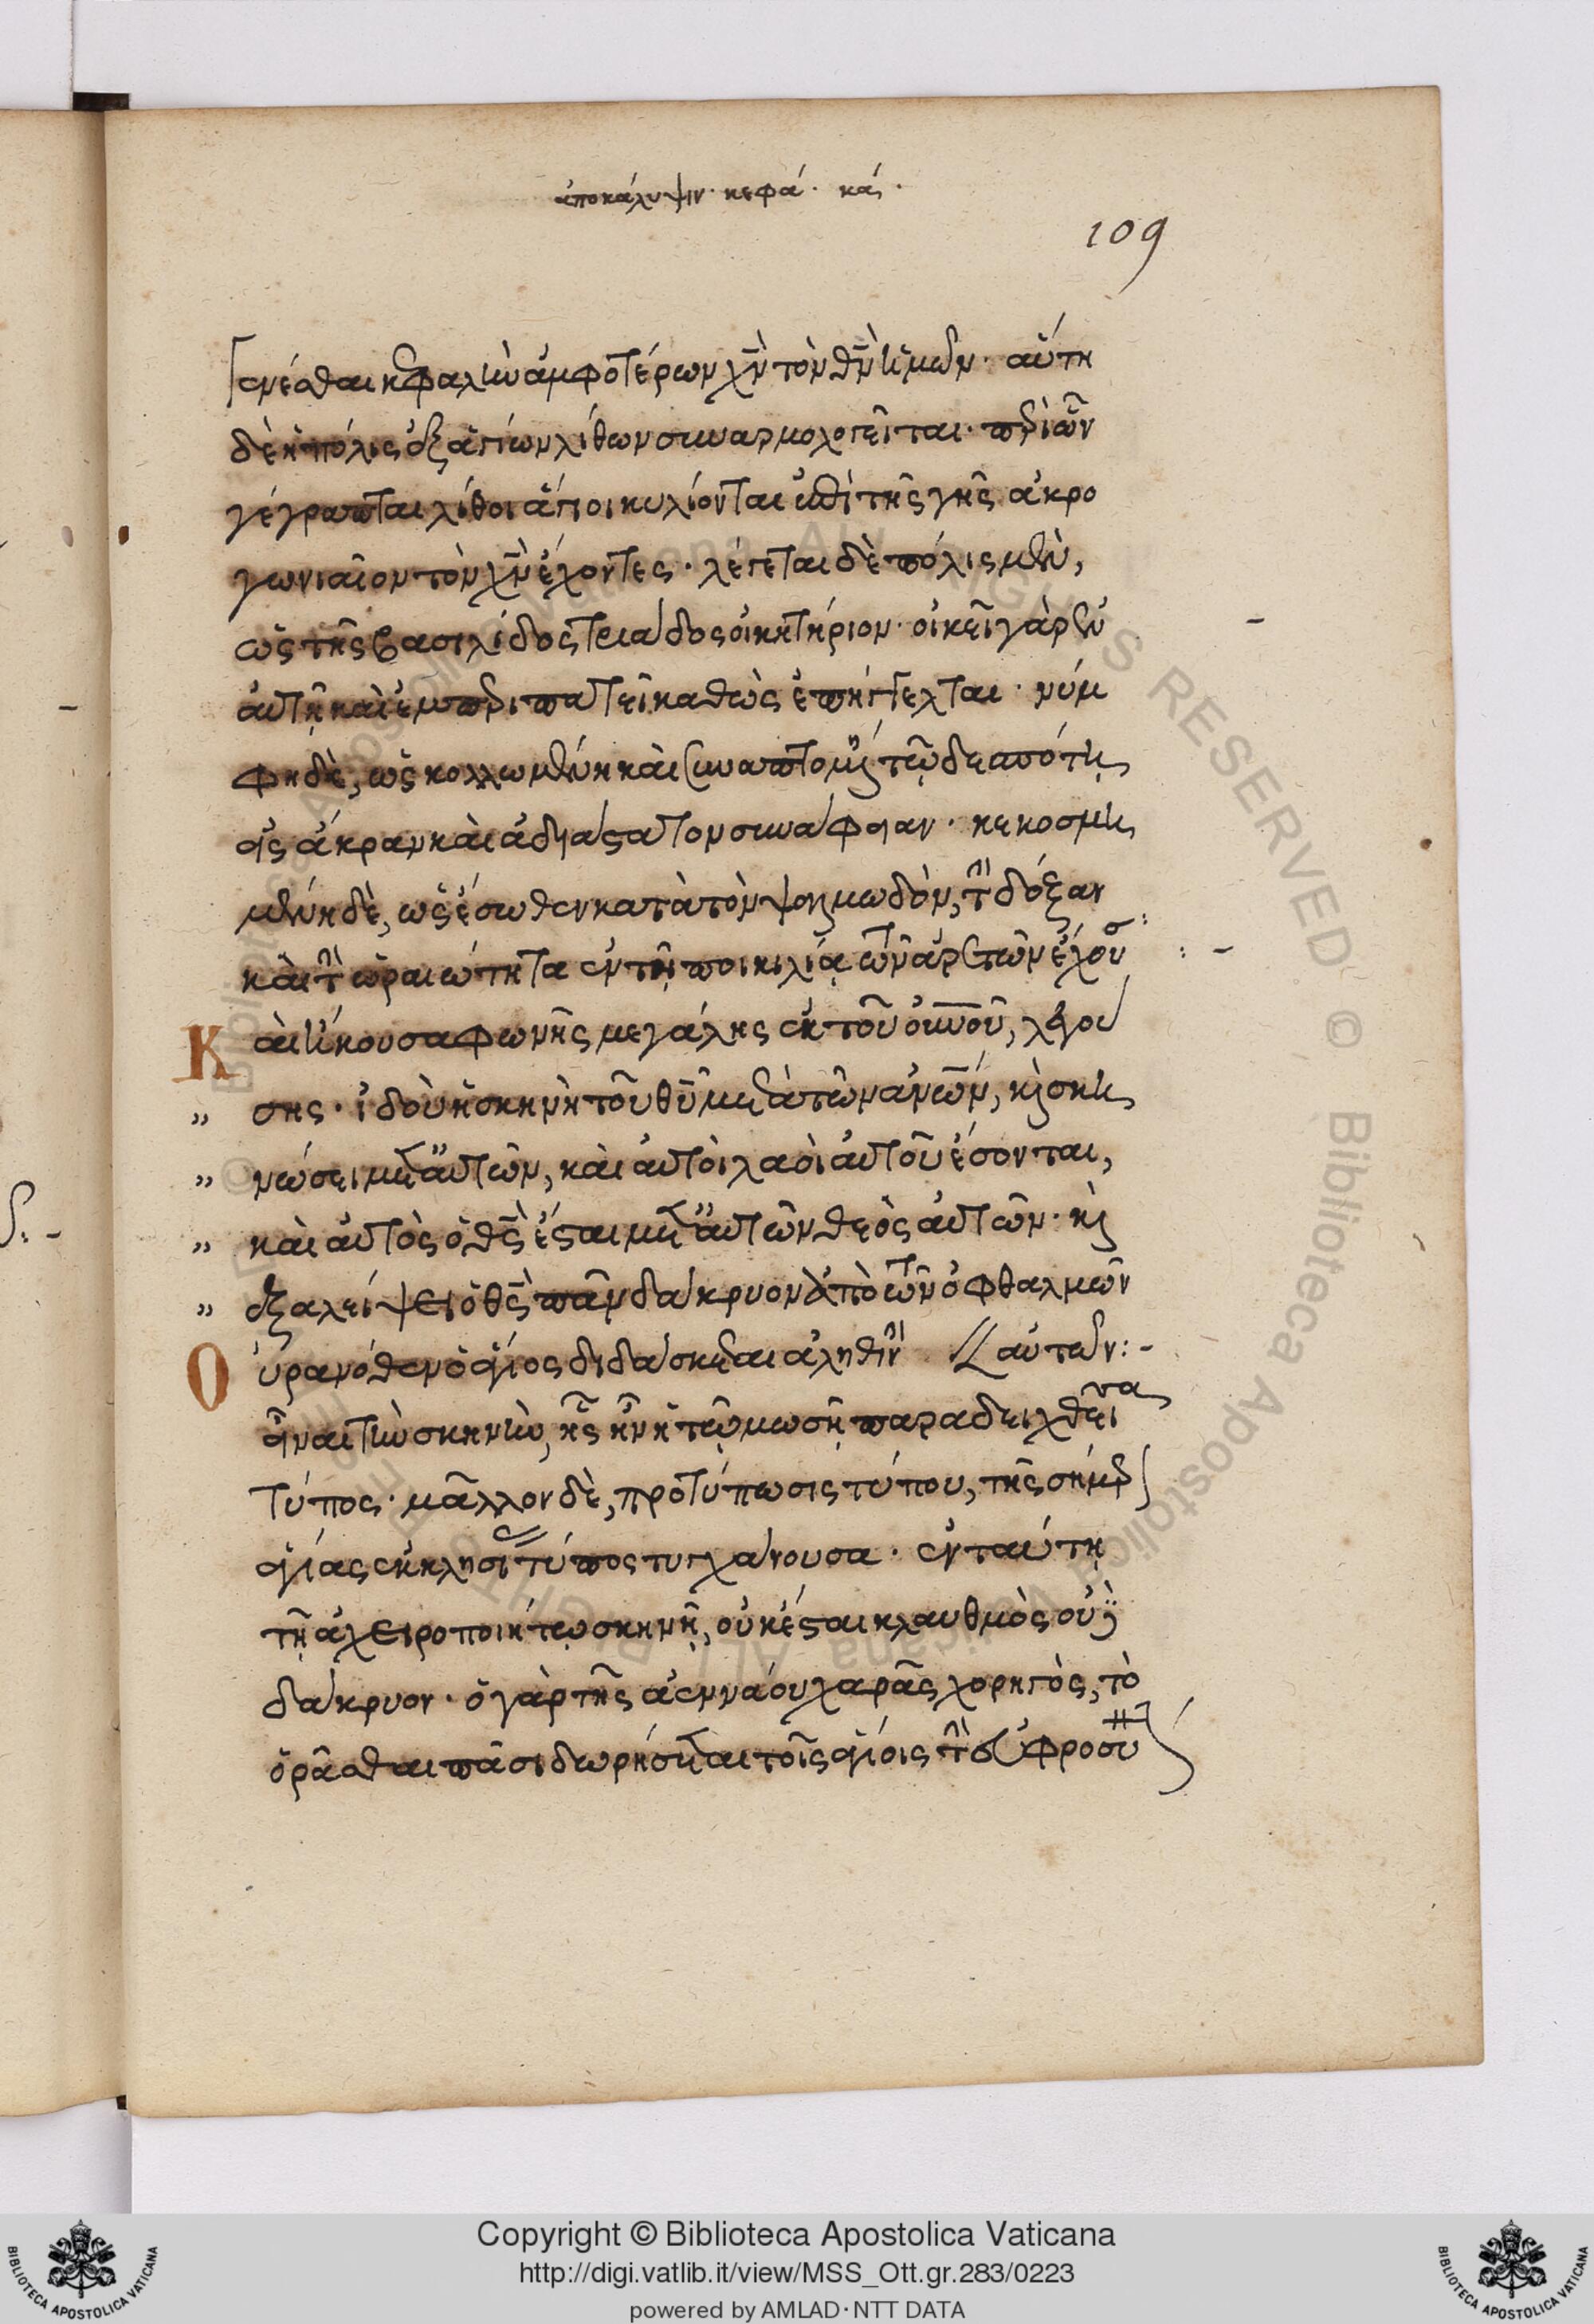 ἀποκάλυψιν· κεφά· κα·
109
γενέσθαι κεφαλὴν ἀμφοτέρων χν τὸν θν ἡμῶν· αὕτη
δὲ ἡ πόλις ἐξ ἁγίων λίθων συναρμολογεῖται· περὶ ὧν
γέγραπται λίθοι ἅγιοι κυλίονται ἐπὶ τῆς γῆς ἀκρο
γωνιαῖον τὸν χν ἔχοντες· λέγεται δὲ πόλις μὲν,
ὡς τῆς βασιλίδος τριάδος οἰκητήριον· οἰκεῖ γὰρ ἐν
αὐτῇ καὶ ἐμπεριπατεῖ καθὼς ἐπήγγελται· νύμ
φη δὲ, ὡς κολλωμένη καὶ συναπτομένη τῷ δεσπότῃ
εἰς ἄκραν καὶ ἀδιάστατον συνάφειαν· κεκοσμη
μένη δὲ, ὡς ἔσωθεν κατὰ τὸν ψαλμωδὸν, τὴν δόξαν
καὶ τὴν ὡραιότητα ἐν τῇ ποικιλίᾳ τῶν ἀρετῶν ἔχουσα:
Καὶ ἤκουσα φωνῆς μεγάλης ἐκ τοῦ οὐνοῦ, λεγού
„ σης· ἰδοὺ ἡ σκηνὴ τοῦ θυ μετὰ τῶν ἀνων, καὶ σκη
„ νώσει μετ' αὐτῶν, καὶ αὐτοὶ λαοὶ αὐτοῦ ἔσονται,
„ καὶ αὐτὸς ὁ θς ἔσται μετ' αὐτῶν θεὸς αὐτῶν· καὶ
„ ἐξαλείψει ὁ θς πᾶν δάκρυον ἀπὸ τῶν ὀφθαλμῶν
Οὐρανόθεν ὁ ἅγιος διδάσκεται ἀληθινὴν // αὐτῶν:-
εἶναι τὴν σκηνὴν, ἧς ἦν ἡ τῷ μωσῇ παραδειχθεῖσα
τύπος· μᾶλλον δὲ, προτύπωσις τύπου, τῆς σήμερον
ἁγίας ἐκκλησίας τύπος τυγχάνουσα· ἐν ταύτῃ
τῇ ἀχειροποιήτῳ σκηνῇ, οὐκ ἔσται κλαυθμὸς οὐδὲ
δάκρυον· ὁ γὰρ τῆς ἀεννάου χαρᾶς χορηγὸς, τὸ
ὁρᾶσθαι πᾶσι δωρήσεται τοῖς ἁγίοις τὴν εὐφροσύ
Copyright © Biblioteca Apostolica Vaticana
http://digi.vatlib.it/view/MSS_Ott.gr.283/0223
powered by AMLAD·NTT DATA